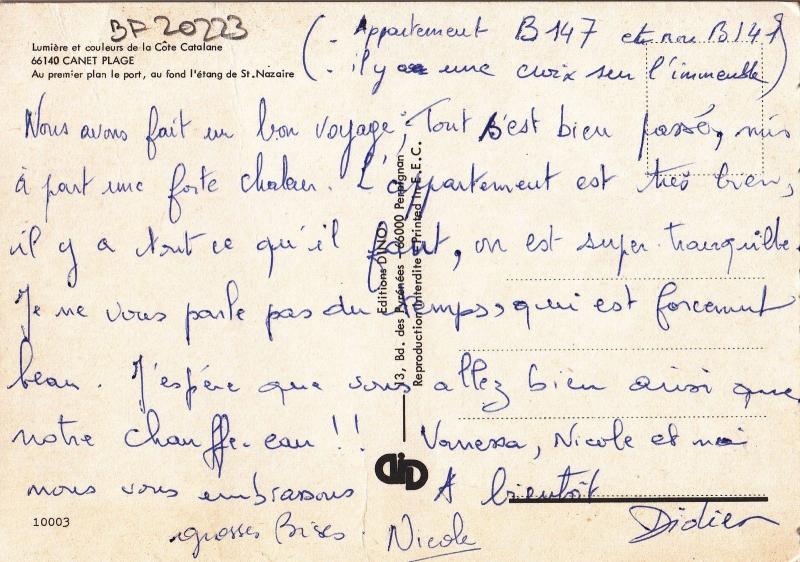 BF 20223
Lumière et couleurs de la Côte Catalane
66140 CANET PLAGE
Au premier plan le port, au fond l'étang de St. Nazaire
(- Appartement B 147 et non B 147
(- il y a une croix sur l'immeuble)
Nous avons fait un bon voyage; Tout s'est bien passé, mis
à part une forte chaleur. L'appartement est très bien,
il y a tout ce qu'il faut, on est super tranquille.
Je ne vous parle pas du temps, qui est forcement
beau. J'espère que vous allez bien ainsi que
notre chauffe-eau !! Vanessa, Nicole et moi
nous vous embrassons A bientôt
Didier
grosses Bises. Nicole
10003
Editions DINO
13, Bd. des Pyrénées - 66000 Perpignan
Reproduction Interdite - Printed In E.E.C.
DiD